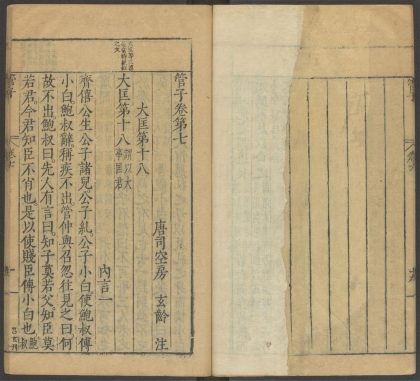 管子卷第七
大匡第十八
唐司空房 玄齡 注
大匡第十八
内言一
齊僖公生公子諸兒公子糺公子小白使鮑叔傅
小白鮑叔辭稱疾不出管仲與召忽往見之曰何
故不出鮑叔曰先人有言曰知子莫若父知臣莫
若君今君知臣不肖也是以使賤臣傅小白也